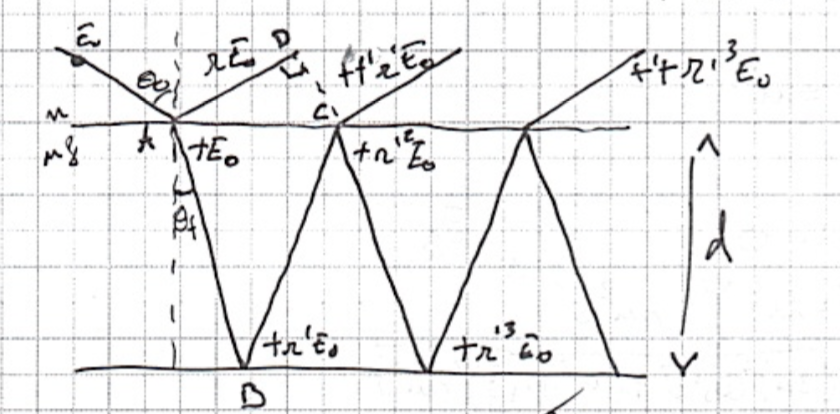 E₀ θ₀ rE₀ D tt'r'E₀ t'tr'³E₀
n A C
n_f tE₀ tr'²E₀
θf d
tr'E₀ tr'³E₀
B